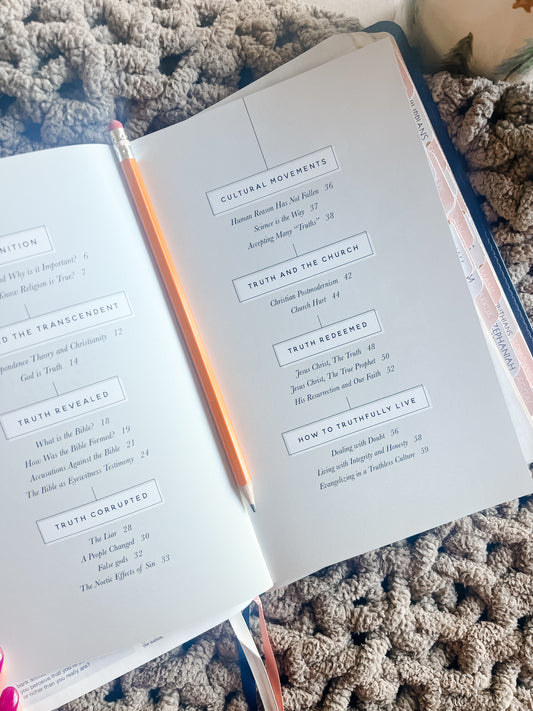 NITION
nd Why is it Important? 6
Know Religion is True? 7
D THE TRANSCENDENT
pondence Theory and Christianity 12
God is Truth 14
TRUTH REVEALED
What is the Bible? 18
How Was the Bible Formed? 19
Accusations Against the Bible 21
The Bible as Eyewitness Testimony 24
TRUTH CORRUPTED
The Liar 28
A People Changed 30
False gods 32
The Noetic Effects of Sin 33
CULTURAL MOVEMENTS
Human Reason Has Not Fallen 36
Science is the Way 37
Accepting Many "Truths" 38
TRUTH AND THE CHURCH
Christian Postmodernism 42
Church Hurt 44
TRUTH REDEEMED
Jesus Christ, The Truth 48
Jesus Christ, The True Prophet 50
His Resurrection and Our Faith 52
HOW TO TRUTHFULLY LIVE
Dealing with Doubt 56
Living with Integrity and Honesty 58
Evangelizing in a Truthless Culture 59
ZEPHANIAH
you perceive that you're
or richer than you really are?